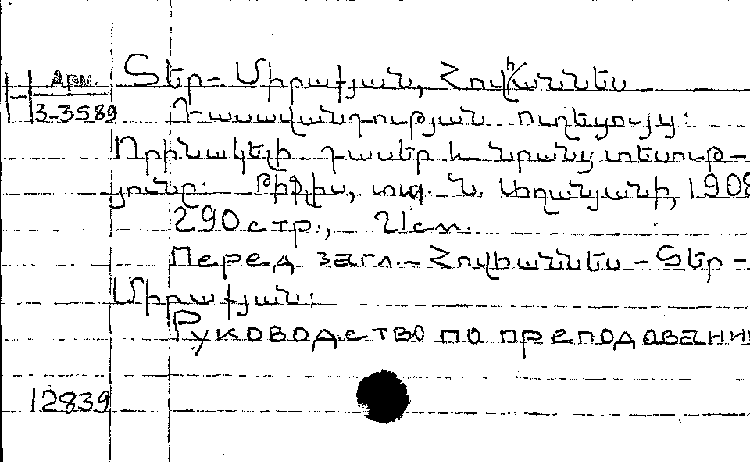 Арм. Տեր-Միրաքյան, Հովհաննես
3-3589 Դասավանդության ուղեցույց:
Օրինակելի դասեր և նրանց տեսութ-
յունը: Թիֆլիս, տպ. Ն. Աղանյանի, 1908
290 стр., 21 см.
Перед загл.-Հովհաննես-Տեր-
Միրաքյան:
Руководство по преподавани
12839